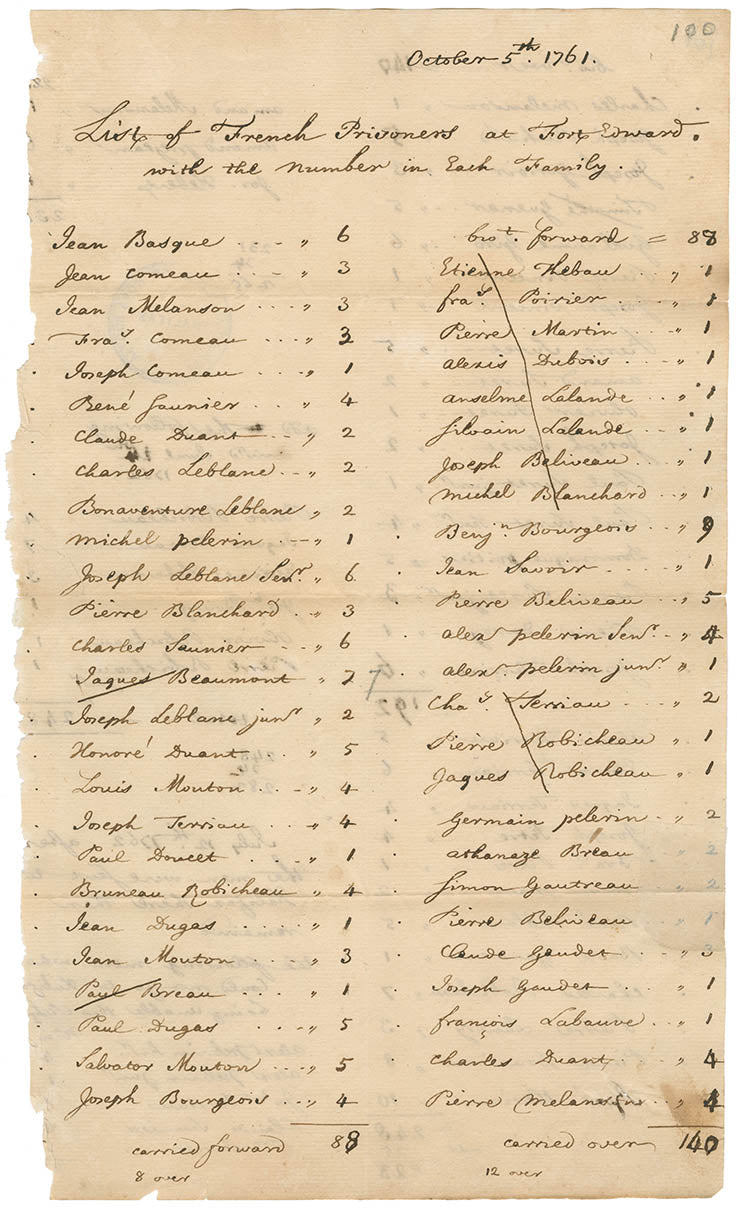 100
October 5th. 1761.
List of French Prisoners at Fort Edward.
with the Number in Each Family.
Jean Basque . . . - „ 6
Jean Comeau . . . - „ 3
Jean Melanson . . . - „ 3
Fras. Comeau . . . - „ 3
Joseph Comeau . . . - „ 1
René Saunier . . . - „ 4
Claude Duant . . - „ 2
Charles Leblanc . . - „ 2
Bonaventure Leblanc „ 2
Michel pelerin . . - - „ 1
Joseph Leblanc Senr. „ 6
Pierre Blanchard . . „ 3
Charles Saunier . . - „ 6
Jaques Beaumont „ 7
Joseph Leblanc junr „ 2
Honoré Duant . . . „ 5
Louis Mouton . . . - „ 4
Joseph Terriau . . . - „ 4
Paul Doucet . . . . „ 1
Bruneau Robicheau „ 4
Jean Dugas . . . . „ 1
Jean Mouton . . . . „ 3
Paul Breau . . . . „ 1
Paul Dugas . . . - „ 5
Salvator Mouton . . „ 5
Joseph Bourgeois . . „ 4
carried forward 88
8 over
brot. forward = 88
Etienne Thebau . . . „ 1
fras. Poirier . . . . „ 1
Pierre Martin . . . - „ 1
alexis Dubois . . . - „ 1
anselme Lalande . . „ 1
Silvain Lalande . . „ 1
Joseph Beliveau . . „ 1
Michel Blanchard . - „ 1
Benjn. Bourgeois . . „ 9
Jean Savoir . . . . „ 1
Pierre Beliveau . . „ 5
alexr pelerin Senr. - „ 4
alexr. pelerin junr. „ 1
Chas. Terriau . . . - „ 2
Pierre Robicheau „ 1
Jaques Robicheau „ 1
Germain pelerin . - „ 2
athanaze Breau 2
Simon Gautreau „ 2
Pierre Beliveau 1
Claude Gaudet . . „ 3
Joseph Gaudet . . . „ 1
françois Labauve . . „ 1
Charles Duant . . . „ 4
Pierre Melanson . „ 4
carried over 140
12 over